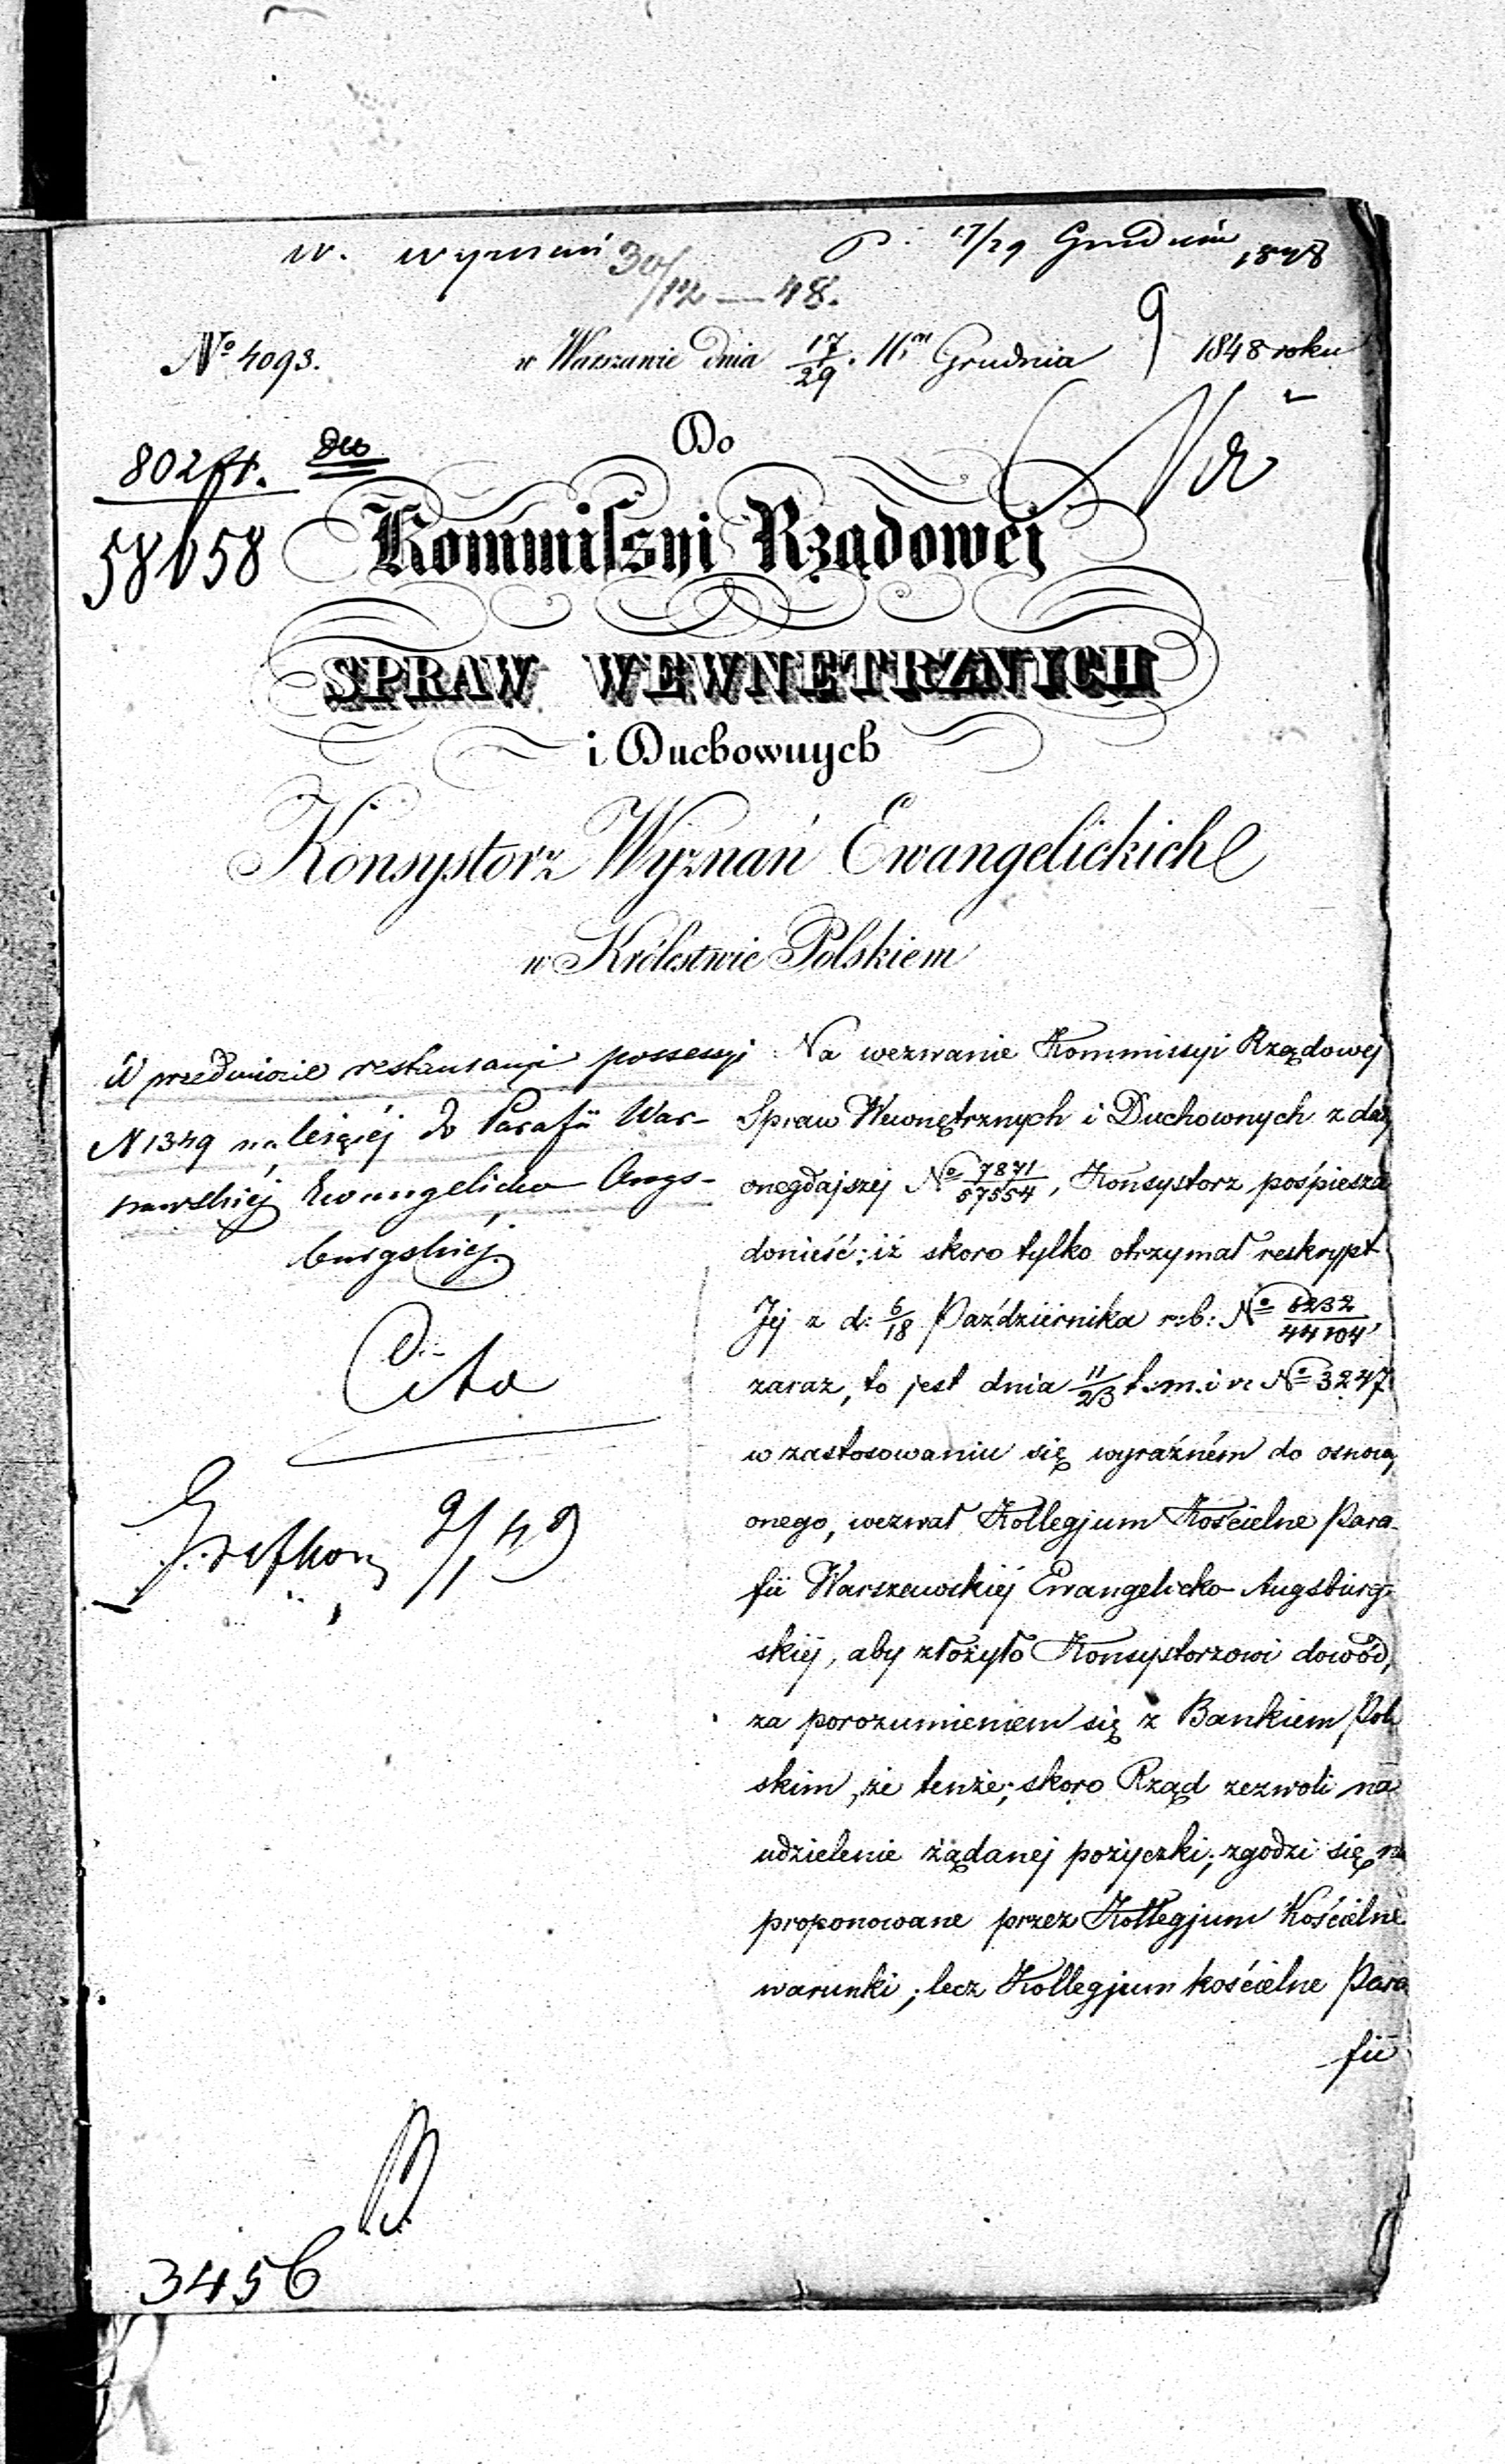 w. wyznań P: 17/29 Grudnia 1848
30/12 — 48.
9
№ 4093. w Warszawie dnia 17/29. Mca Grudnia 1848 roku
Do
802
58658
Kommissyi Rządowej
SPRAW WEWNĘTRZNYCH
i Duchownych
Konsystorz Wyznań Ewangelickich
w Królestwie Polskiem
W przedmiocie restauracyi possessyi
N 1349 należącéj do Parafii War-
szawskiéj Ewangelicko Augs-
burgskiéj.
Cito
9/1 49
Na wezwanie Kommissyi Rządowej
Spraw Wewnętrznych i Duchownych z daty
onegdajszej № 7871/57554, Konsystorz pośpiesza
donieść: iż skoro tylko otrzymał reskrypt
Jej z d: 6/18 Października r: b: № 6232/44104,
zaraz, to jest dnia 11/23 t. m. i r. № 3247
w zastosowaniu się wyraźném do osnowy
onego, wezwał Kollegjum Kościelne Para-
fii Warszawskiéj Ewangelicko Augsburg-
skiéj, aby złożyło Konsystorzowi dowód,
za porozumieniem się z Bankiem Pol-
skim, że tenże; skoro Rząd zezwoli na
udzielenie żądanej pożyczki; zgodzi się na
proponowane przez Kollegjum Kościelne
warunki; lecz Kollegjum kościelne Para
fii
3456